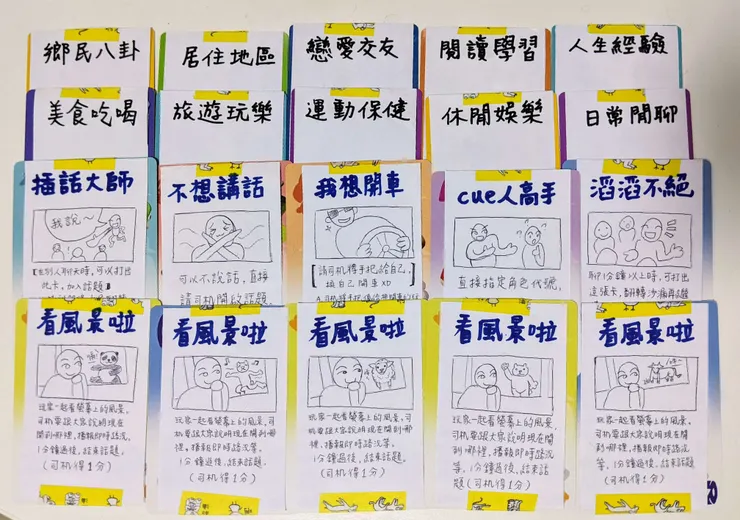 鄉民八卦
居住地區
戀愛交友
閱讀學習
人生經驗
美食吃喝
旅遊玩樂
運動保健
休閒娛樂
日常閒聊
插話大師
我說～
【在別人聊天時，可以打出
此卡，加入話題】
不想講話
可以不說話，直接
請司机開啟話題
我想開車
【請司机傳手把給自己，
換自己開車XD
cue人高手
直接指定角色代號，
滔滔不絕
聊1分鐘以上時，可打出
這張卡，翻轉沙漏再去聊
看風景啦
玩家一起看螢幕上的風景，
司机要跟大家說明現在
開到哪裡，播報即時路況。
1分鐘過後，結束話題
(司机得1分)
看風景啦
玩家一起看螢幕上的風景，司
机要跟大家說明現在開到哪
裡，播報即時路況等。
1分鐘過後，結束話題。
(司机得1分)
看風景啦
玩家一起看螢幕上的風景，司
机要跟大家說明現在開到哪
裡，播報即時路況等。
1分鐘過後，結束話題。
(司机得1分)
看風景啦
玩家一起看螢幕上的風景，
司机要跟大家說明現在開
到哪裡，播報即時路況
等。1分鐘過後，結束話
題(司机得1分)
看風景啦
玩家一起看螢幕上的風景，
司机要跟大家說明現在開
到哪裡，播報即時路況等。
1分鐘過後，結束話題。
(司机得1分)